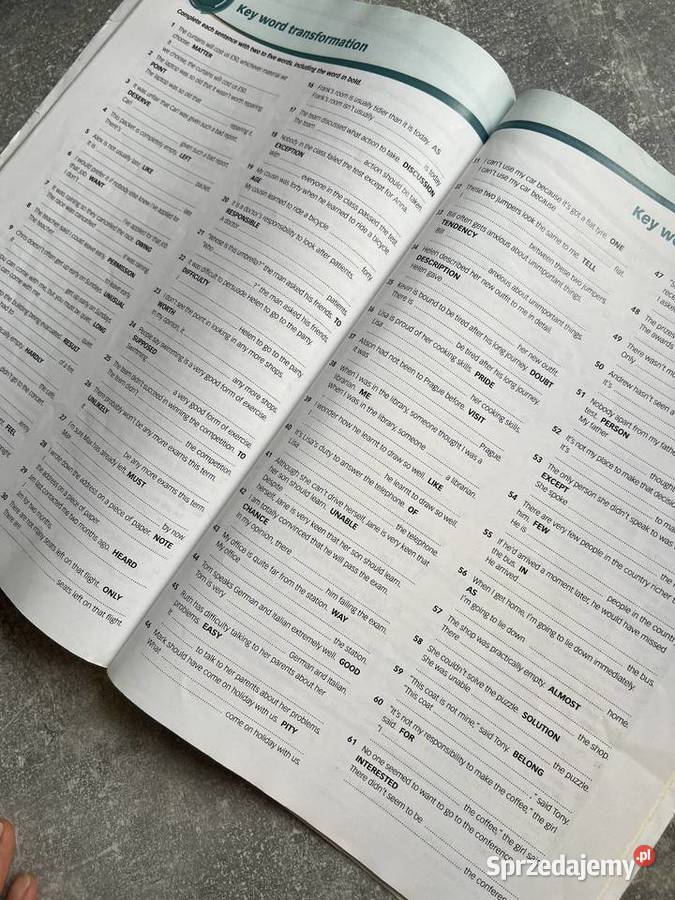 Key word transformation
Complete each sentence with two to five words, including the word in bold.
1 The curtains will cost us £50, whichever material we
choose. MATTER
we choose, the curtains will cost us £50.
2 The laptop was so old that it wasn't worth repairing.
POINT
The laptop was so old that
repairing it.
3 It was unfair that Carl was given such a bad report.
DESERVE
Carl
given such a bad report.
4 This packet is completely empty. LEFT
There's
packet.
5 Alex is not usually late. LIKE
It is
late.
6 I would prefer it if nobody else knew I've applied for
that job. WANT
I don't
I've applied for this job.
7 It was raining so they cancelled the race. OWING
The race was cancelled
it was raining.
8 The teacher said I could leave early. PERMISSION
to leave early.
9 Chris doesn't often get up early on Sundays. UNUSUAL
get up early on Sundays.
can come with me, but you must be quiet. LONG
can come with me
quiet.
the building being evacuated. RESULT
had to
of a fire.
practically empty. HARDLY
the cafe.
didn't go to the concert.
FEEL
16 Frank's room is usually tidier than it is today. AS
Frank's room isn't usually
is today.
17 The team discussed what action to take. DISCUSSION
The team
action should be taken.
18 Nobody in the class failed the test except for Anna.
EXCEPTION
With
everyone in the class passed the test.
19 My cousin was forty when he learned to ride a bicycle.
AGE
My cousin learned to ride a bicycle
forty.
20 It is a doctor's responsibility to look after patients.
RESPONSIBLE
A doctor
patients.
21 "Whose is this umbrella?" the man asked his friends. TO
"Who
?" the man asked his friends.
22 It was difficult to persuade Helen to go to the party.
DIFFICULTY
Helen to go to the party.
23 I don't see the point in looking in any more shops.
WORTH
In my opinion, it
any more shops.
24 People say swimming is a very good form of exercise.
SUPPOSED
a very good form of exercise.
25 The team didn't succeed in winning the competition. TO
The team didn't
the competition.
26 There probably won't be any more exams this term.
UNLIKELY
It
be any more exams this term.
27 I'm sure Max has already left. MUST
Max
by now.
28 I wrote down the address on a piece of paper. NOTE
the address on a piece of paper.
29 Jim last contacted me two months ago. HEARD
Jim for two months.
30 There are not many seats left on that flight. ONLY
There are
seats left on that flight.
Key wo
31 I can't use my car because it's got a flat tyre. ONE
I can't use my car because
flat.
32 These two jumpers look the same to me. TELL
between these two jumpers.
33 Bill often gets anxious about unimportant things.
TENDENCY
Bill
anxious about unimportant things.
34 Helen described her new outfit to me in detail.
DESCRIPTION
Helen gave
her new outfit.
35 Kevin is bound to be tired after his long journey. DOUBT
There is
be tired after his long journey.
36 Lisa is proud of her cooking skills. PRIDE
Lisa
her cooking skills.
37 Alison had not been to Prague before. VISIT
It was
Prague.
38 When I was in the library, someone thought I was a
librarian. ME
When I was in the library, someone
a librarian.
39 I wonder how he learnt to draw so well. LIKE
he learnt to draw so well.
40 It's Lisa's duty to answer the telephone. OF
Lisa
the telephone.
41 Although she can't drive herself, Jane is very keen that
her son should learn. UNABLE
Despite
herself, Jane is very keen that her son should learn.
42 I am totally convinced that he will pass the exam.
CHANCE
In my opinion, there
him failing the exam.
43 My office is quite far from the station. WAY
My office
the station.
44 Tom speaks German and Italian extremely well. GOOD
Tom is very
German and Italian.
45 Ruth has difficulty talking to her parents about her
problems. EASY
It
to talk to her parents about her problems.
46 Mark should have come on holiday with us. PITY
What
come on holiday with us.
47
rece
I aske
48 The prizes
The awards
49 There wasn't mo
Only
50 Andrew hasn't seen a
It's
51 Nobody apart from my fathe
test. PERSON
My father
52 It's not my place to make that decisio
It's
though
53 The only person she didn't speak to was
EXCEPT
She spoke
54 There are very few people in the country richer t
him. FEW
He is
people in the countr
55 If he'd arrived a moment later, he would have missed
the bus. IN
He arrived
the bus.
56 When I get home, I'm going to lie down immediately.
AS
I'm going to lie down
home.
57 The shop was practically empty. ALMOST
There
the shop.
58 She couldn't solve the puzzle. SOLUTION
She was unable
the puzzle.
59 "This coat is not mine," said Tony. BELONG
"This coat
," said Tony.
60 "It's not my responsibility to make the coffee," the girl
said. FOR
"I
the coffee," the girl said.
61 No one seemed to want to go to the conference.
INTERESTED
There didn't seem to be
the conferen
Sprzedajemy.pl